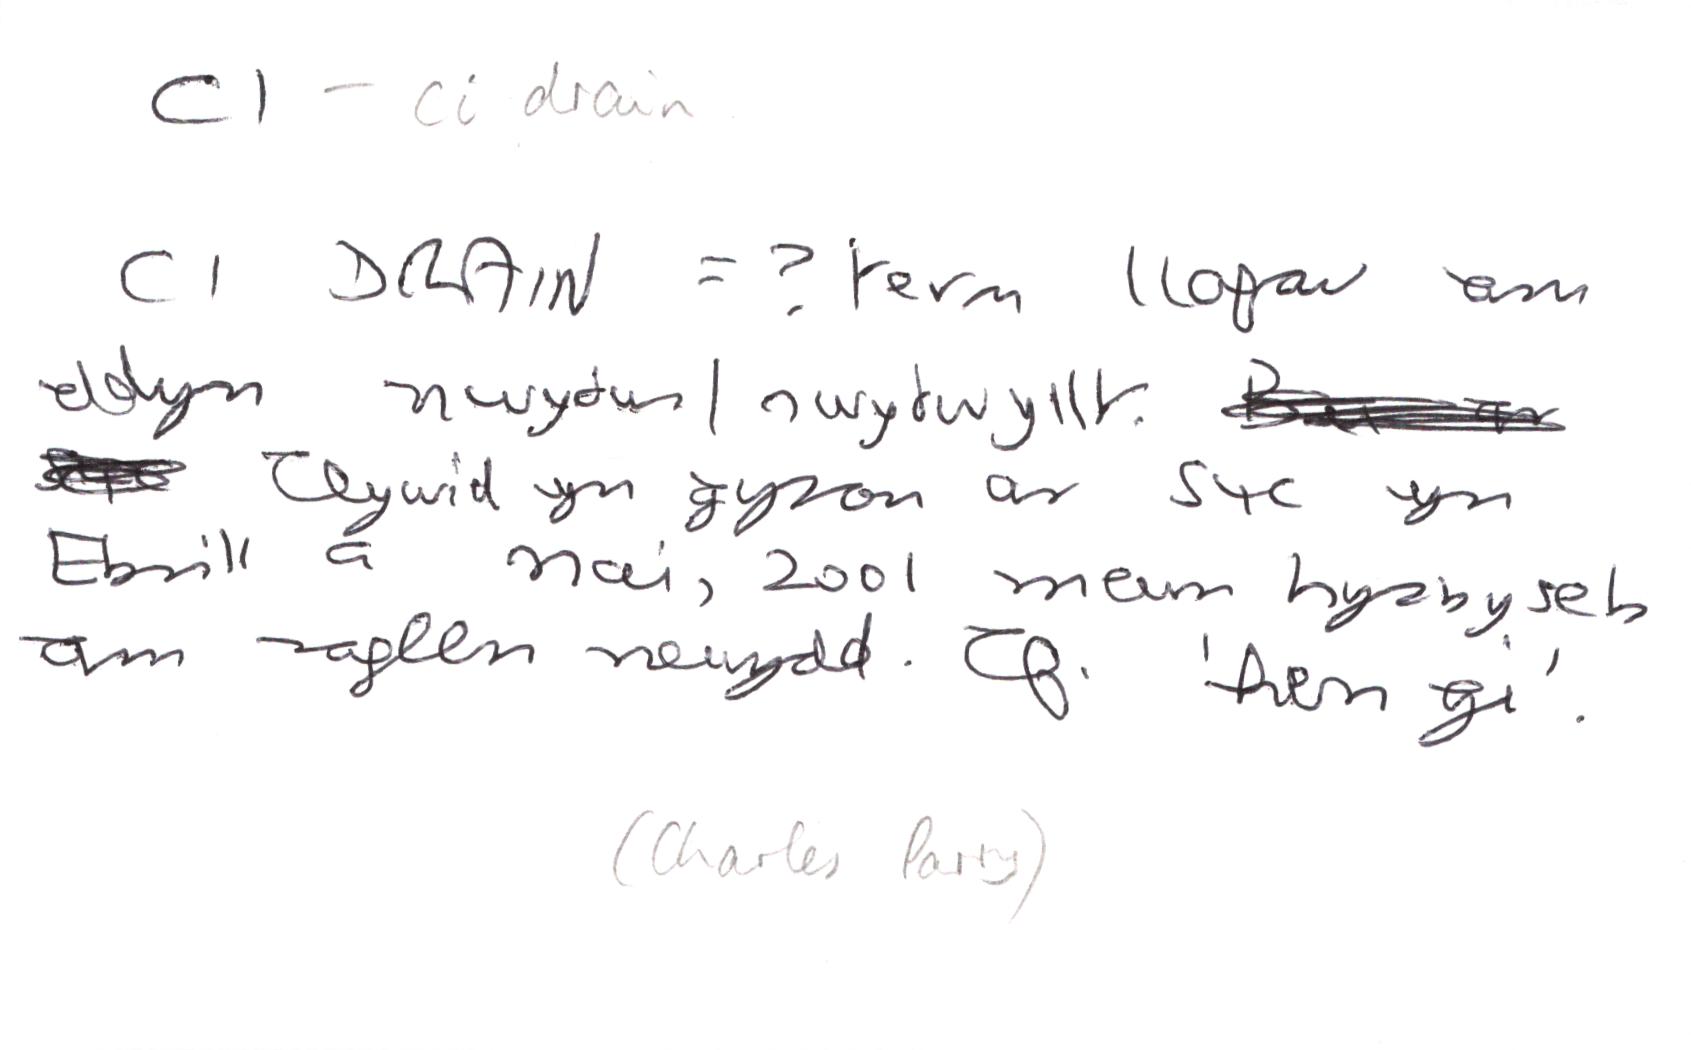 CI - ci drain
CI DRAIN = ? term llafar am
ddyn nwydus / nwydwyllt.
Clywid yn gyson ar S4C yn
Ebrill a Mai, 2001 mewn hysbyseb
am raglen newydd. Cf. 'hen gi'.
(Charles Parry)